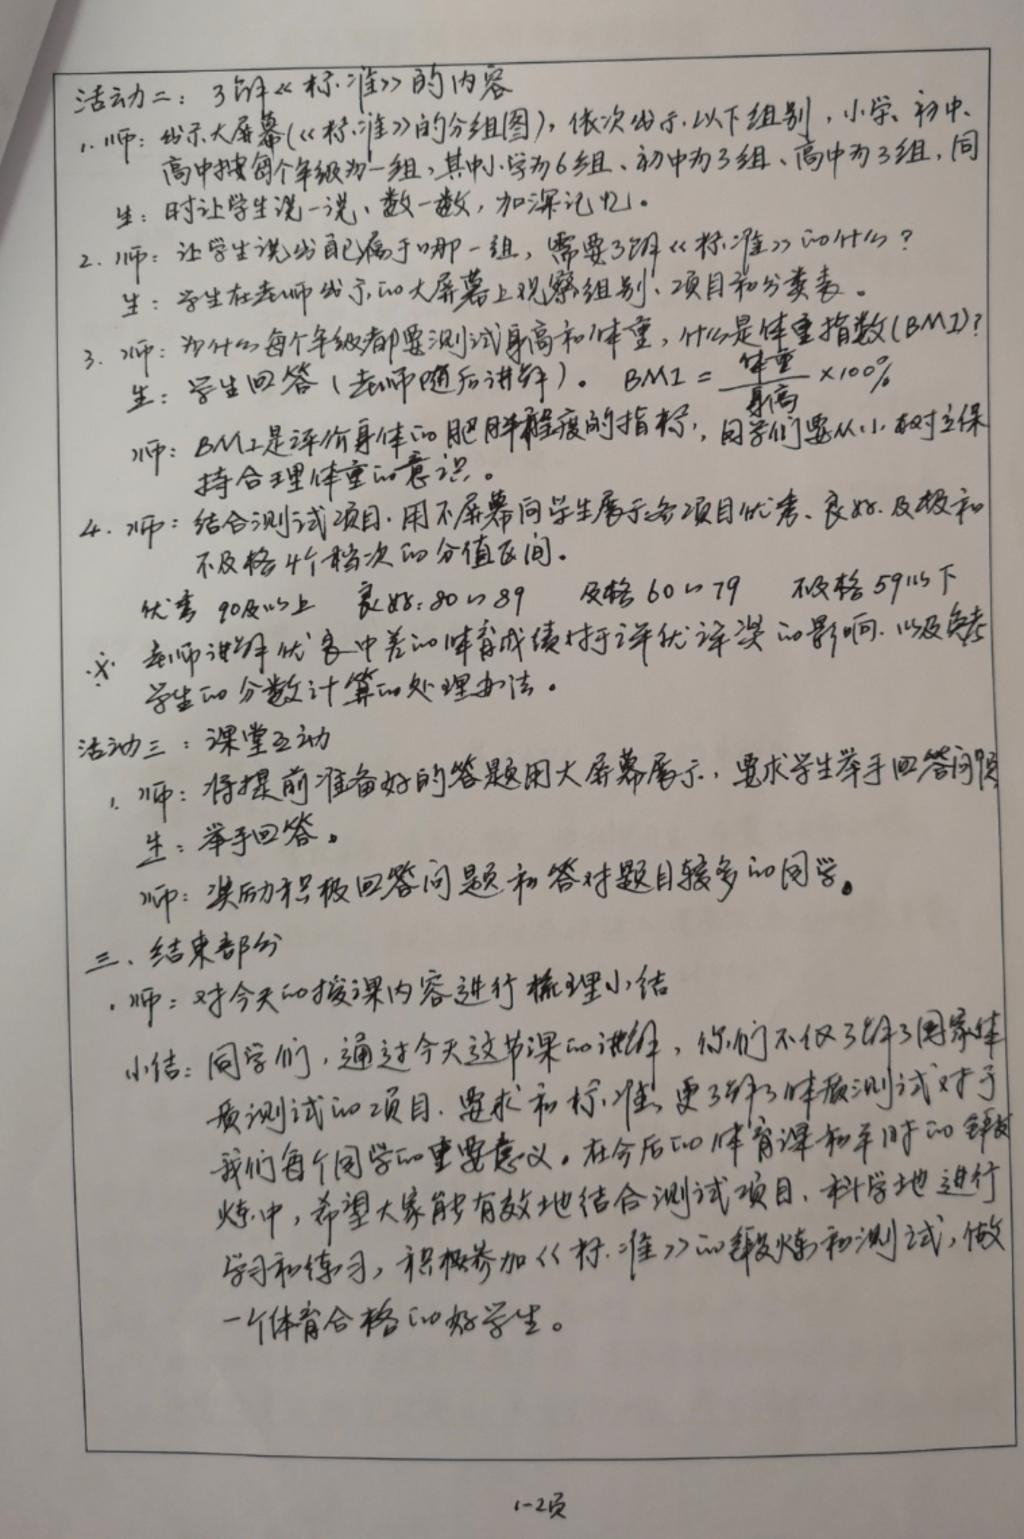 活动二：了解《标准》的内容
1. 师：出示大屏幕(《标准》的分组图)，依次出示以下组别，小学、初中、
高中按每个年级为一组，其中小学为6组、初中为3组、高中为3组，同
生：时让学生说一说、数一数，加深记忆。
2. 师：让学生说出自己属于哪一组，需要了解《标准》的什么？
生：学生在老师出示的大屏幕上观察组别、项目和分类表。
3. 师：为什么每个年级都要测试身高和体重，什么是体重指数(BMI)?
生：学生回答(老师随后讲解)。 BMI = 体重/身高 ×100%
师：BMI是评价身体的肥胖程度的指标，同学们要从小树立保
持合理体重的意识。
4. 师：结合测试项目.用不屏幕向学生展示各项目优秀、良好.及极和
不及格4个档次的分值区间。
优秀 90及以上 良好：80~89 及格60~79 不及格59以下
※ 老师讲解优良中差的体育成绩对于评优评奖的影响.以及免考
学生的分数计算的处理办法。
活动三：课堂互动
1. 师：将提前准备好的答题用大屏幕展示，要求学生举手回答问题
生：举手回答。
师：奖励积极回答问题和答对题目较多的同学。
三、结束部分
.师：对今天的授课内容进行梳理小结
小结：同学们，通过今天这节课的讲解，你们不仅了解了国家体
质测试的项目.要求和标准，更了解了体质测试对于
我们每个同学的重要意义。在今后的体育课和平时的锻
炼中，希望大家能有效地结合测试项目、科学地进行
学习和练习，积极参加《标准》的锻炼和测试，做
一个体育合格的好学生。
1-2页